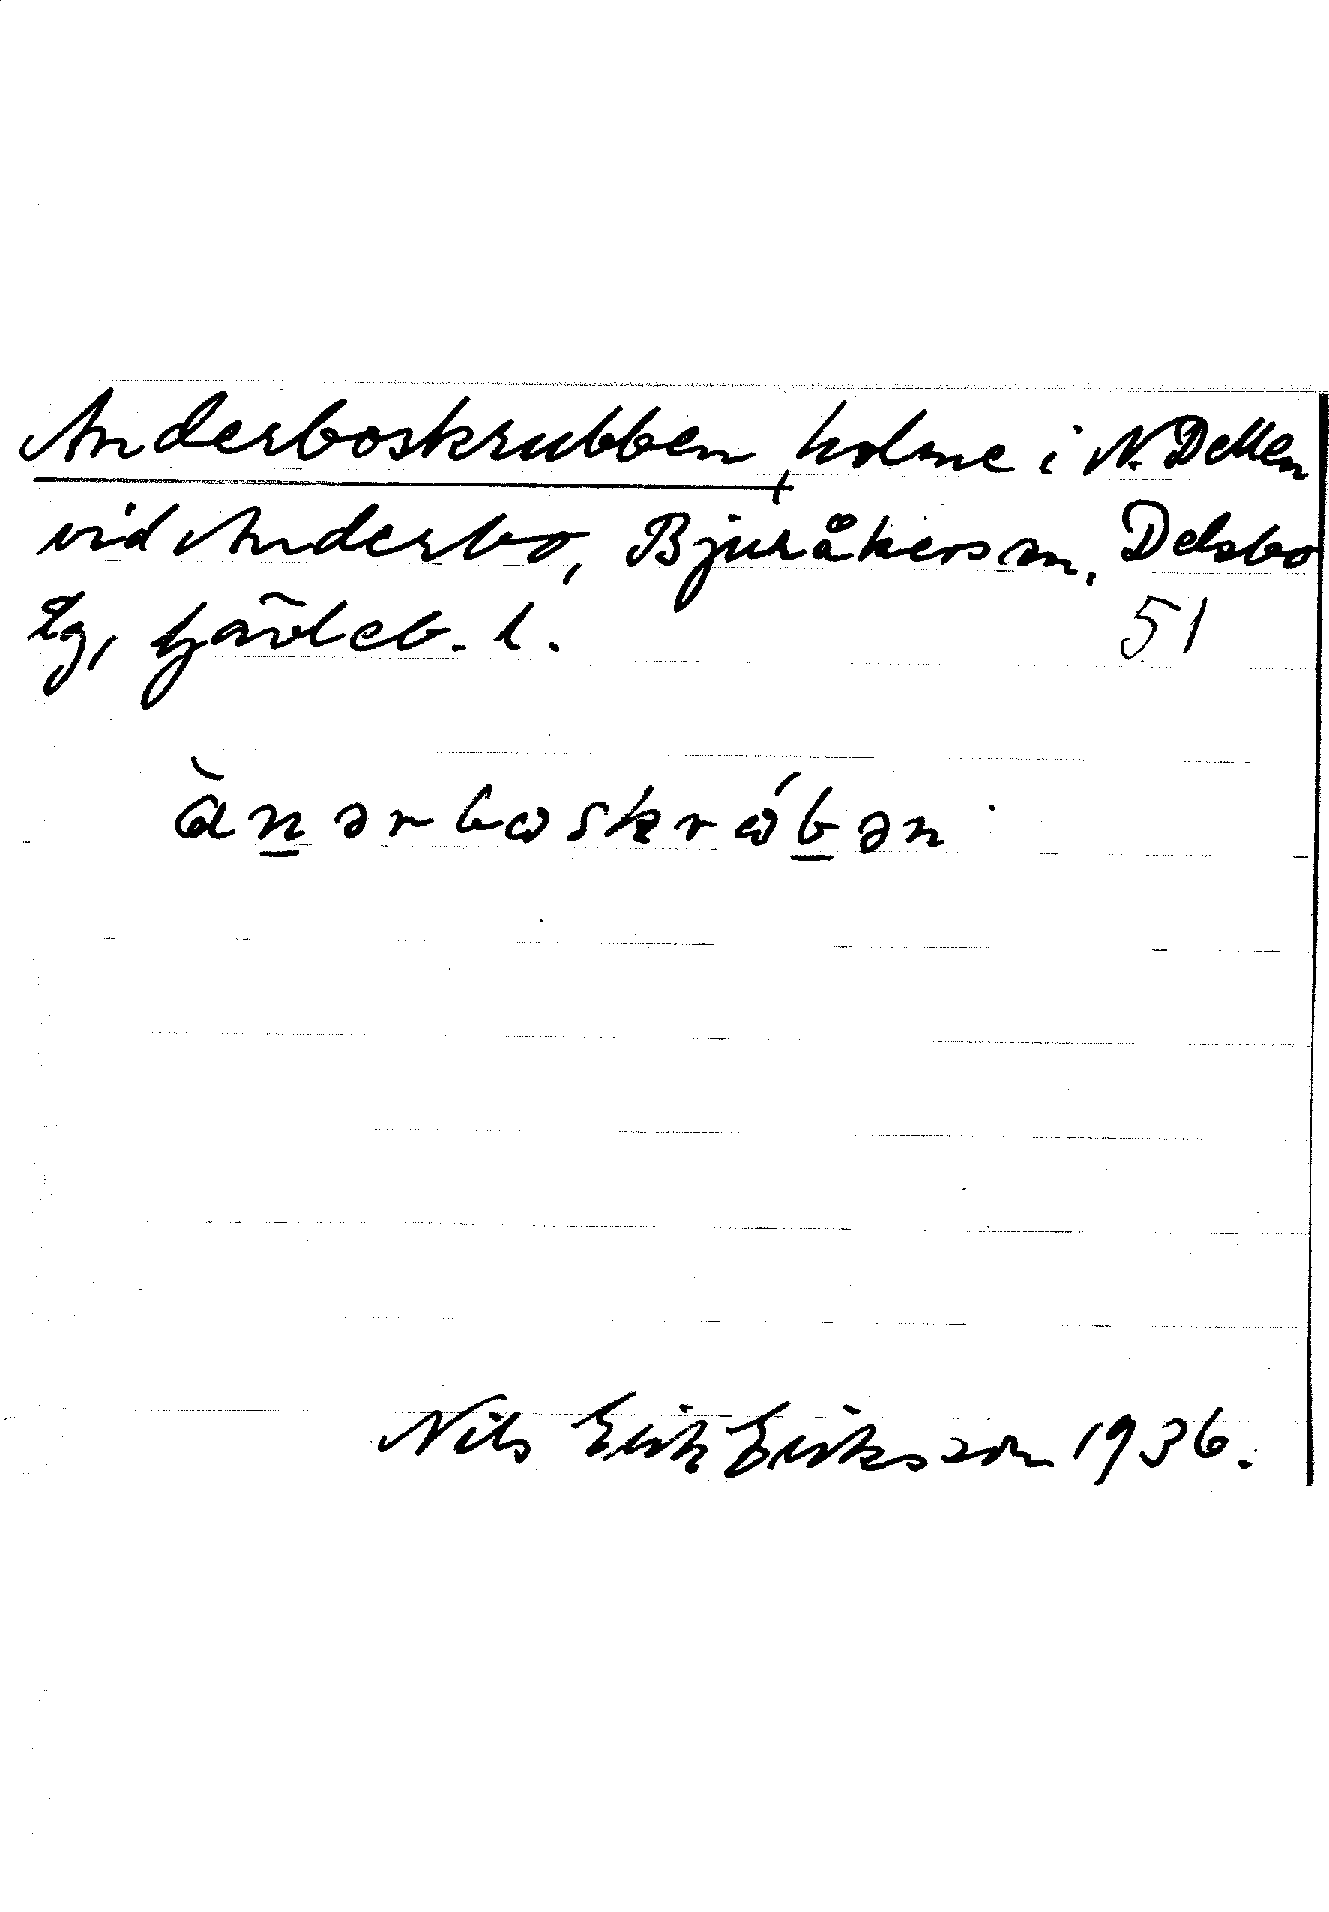 Anderboskrubben, holme i N. Dellen
vid Anderbo, Bjuråkers sn, Delsbo
tg, Gävleb. l.
51
ànərbωskrώbən
Nils Erik Eriksson 1936.